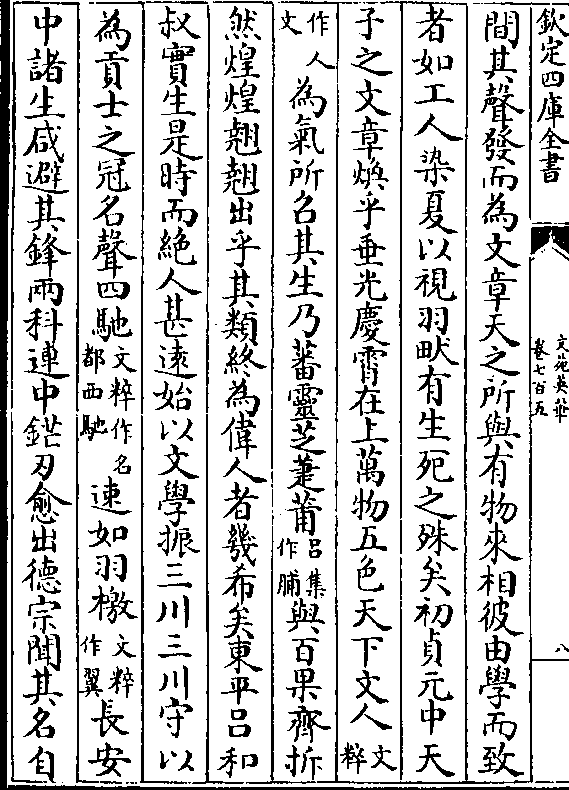 欽定四庫全書
文苑英華
卷七百五
八
間其聲發而為文章天之所與有物來相彼由學而致
者如工人染夏以視羽畎有生死之殊矣初貞元中天
子之文章煥乎垂光慶霄在上萬物五色天下文人文粹
作人文為氣所召其生乃蕃靈芝萐莆呂集作脯與百果齊拆
然煌煌翹翹出乎其類終為偉人者幾希矣東平呂和
叔實生是時而絶人甚逺始以文學振三川三川守以
為貢士之冠名聲四馳文粹作名都西馳速如羽檄文粹作翼長安
中諸生咸避其鋒兩科連中鋩刃愈出德宗聞其名自